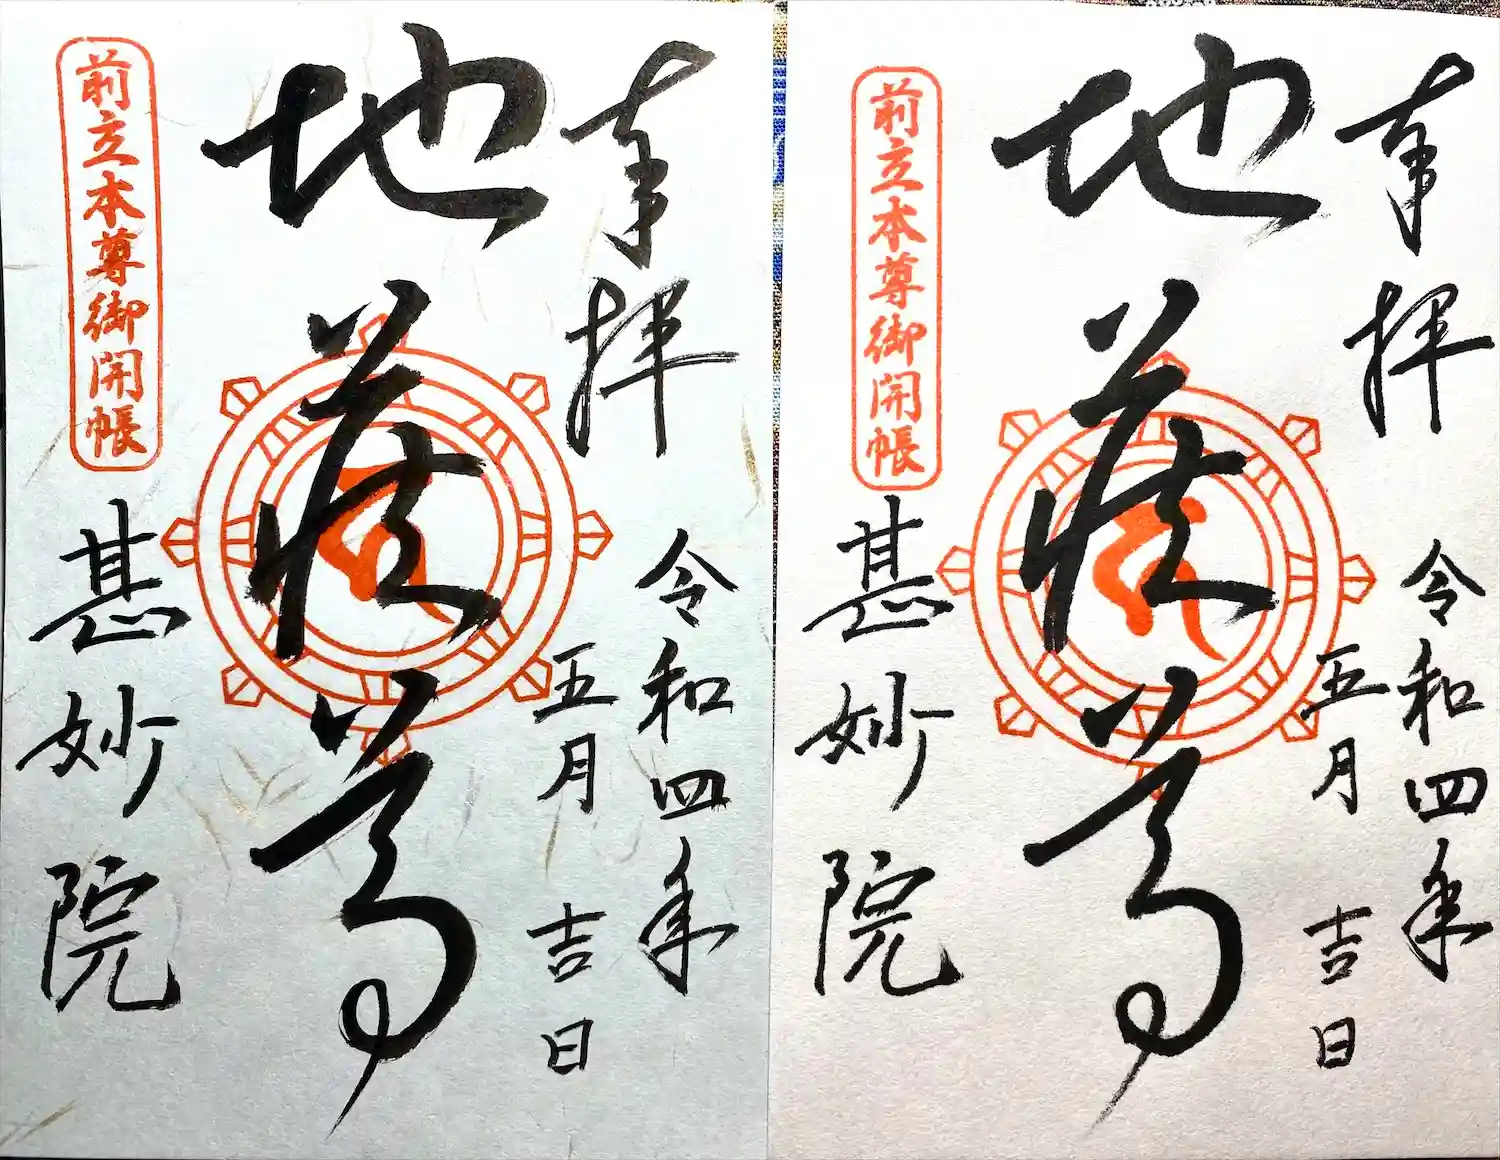 奉拝
令和四年
五月吉日
地蔵尊
前立本尊御開帳
甚妙院
奉拝
令和四年
五月吉日
地蔵尊
前立本尊御開帳
甚妙院